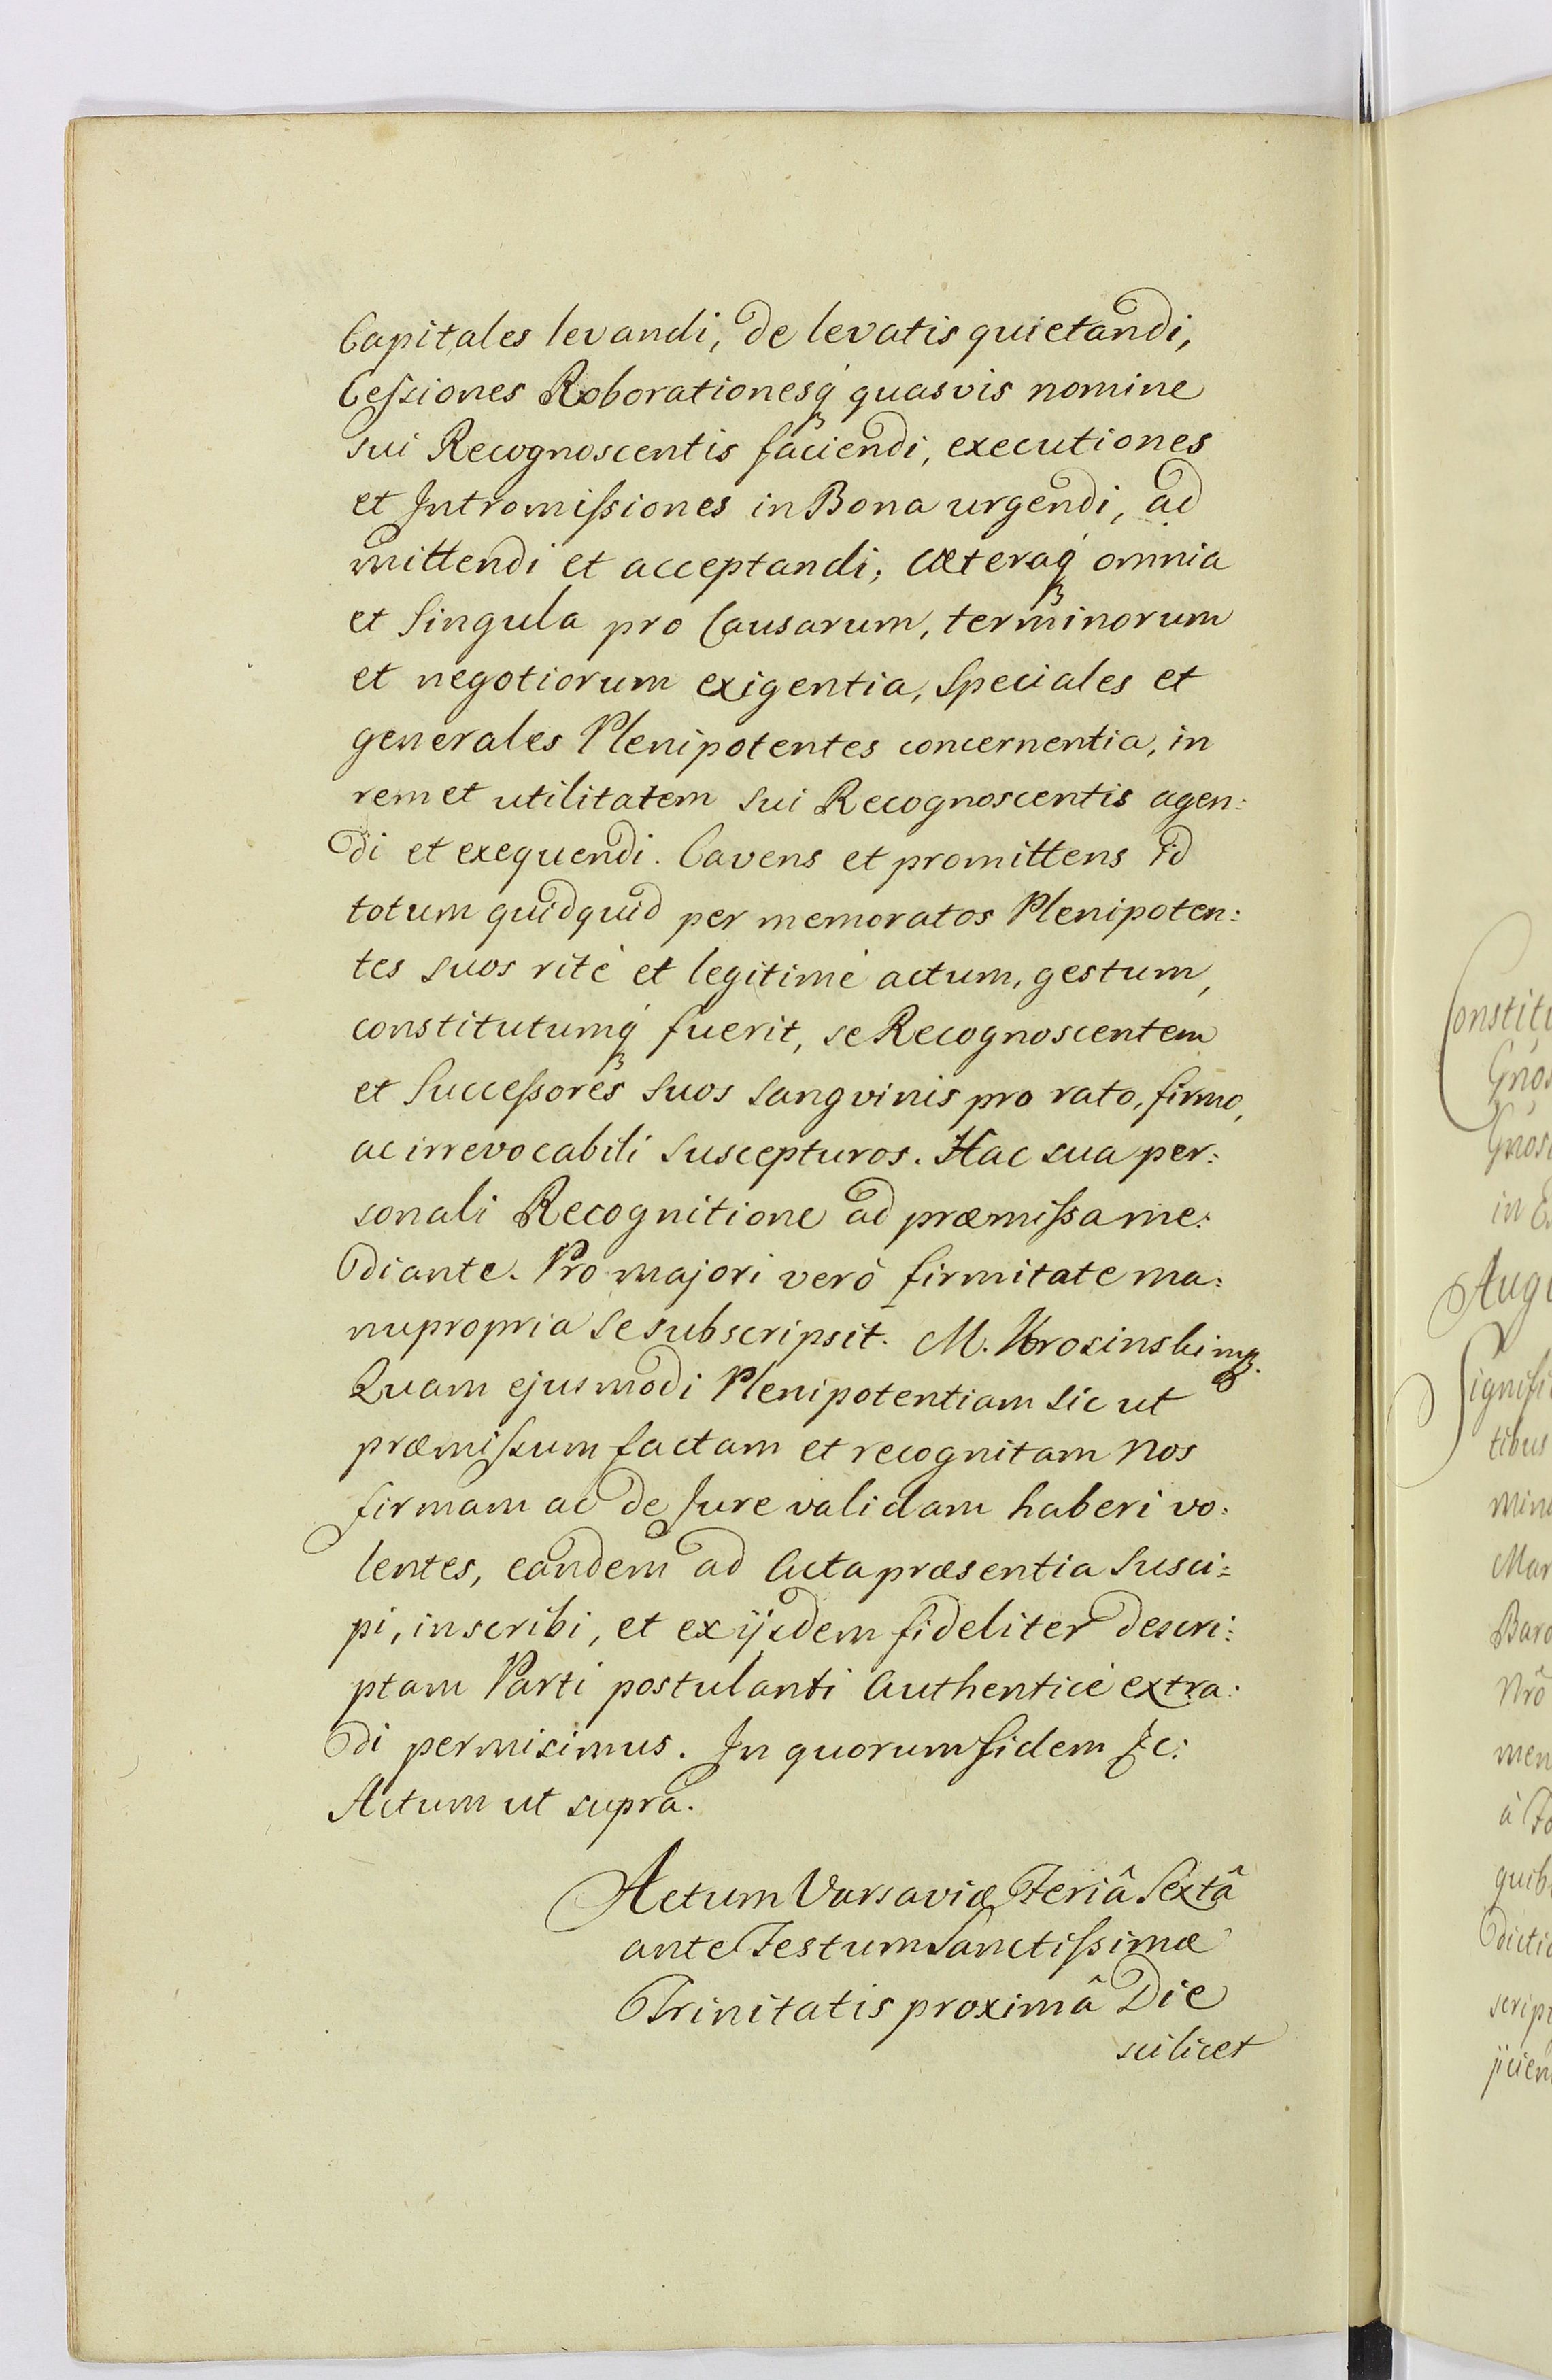 Capitales levandi, de levatis quietandi,
Cessiones Roborationesq́ quasvis nomine
sui Recognoscentis faciendi, executiones
et Intromissiones in Bona urgendi, ad
mittendi et acceptandi; cæteraq́ omnia
et singula pro Causarum, terminorum
et negotiorum exigentia, Speciales et
generales Plenipotentes concernentia, in
rem et utilitatem sui Recognoscentis agen:
di et exequendi. Cavens et promittens id
totum quidquid per memoratos Plenipoten:
tes suos ritè et legitimè actum, gestum,
constitutumq́ fuerit, se Recognoscentem
et Successores suos sangvinis pro rato, firmo,
ac irrevocabili suscepturos. Hac sua per:
sonali Recognitione ad præmissa me:
diante. Pro majori verò firmitate ma:
nupropria se subscripsit. M. Krosinski mp.
Quam ejusmodi Plenipotentiam sic ut
præmissum factam et recognitam Nos
firmam ac de Jure validam haberi vo:
lentes, eandem ad Acta præsentia susci:
pi, inscribi, et ex ijsdem fideliter descri:
ptam Parti postulanti Authenticè extra:
di permisimus. In quorum fidem &c:
Actum ut supra.
Actum Varsaviæ Feriâ Sextâ
ante Festum Sanctissimæ
Trinitatis proximâ Die
scilicet
Constitu
Gnos
Gnosi
in E
Augu
Signifi
tibus
min
Mar
Baro
Nrô
men
à Fo
quib
dictio
script
jicien